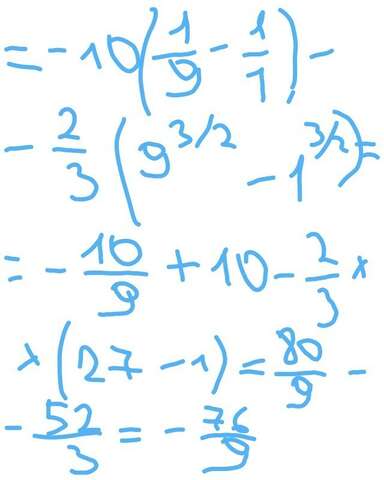 = -10(1/9 - 1/1) -
- 2/3 (9^{3/2} - 1^{3/2}) =
= - 10/9 + 10 - 2/3 ×
× (27 - 1) = 80/9 -
- 52/3 = - 76/9